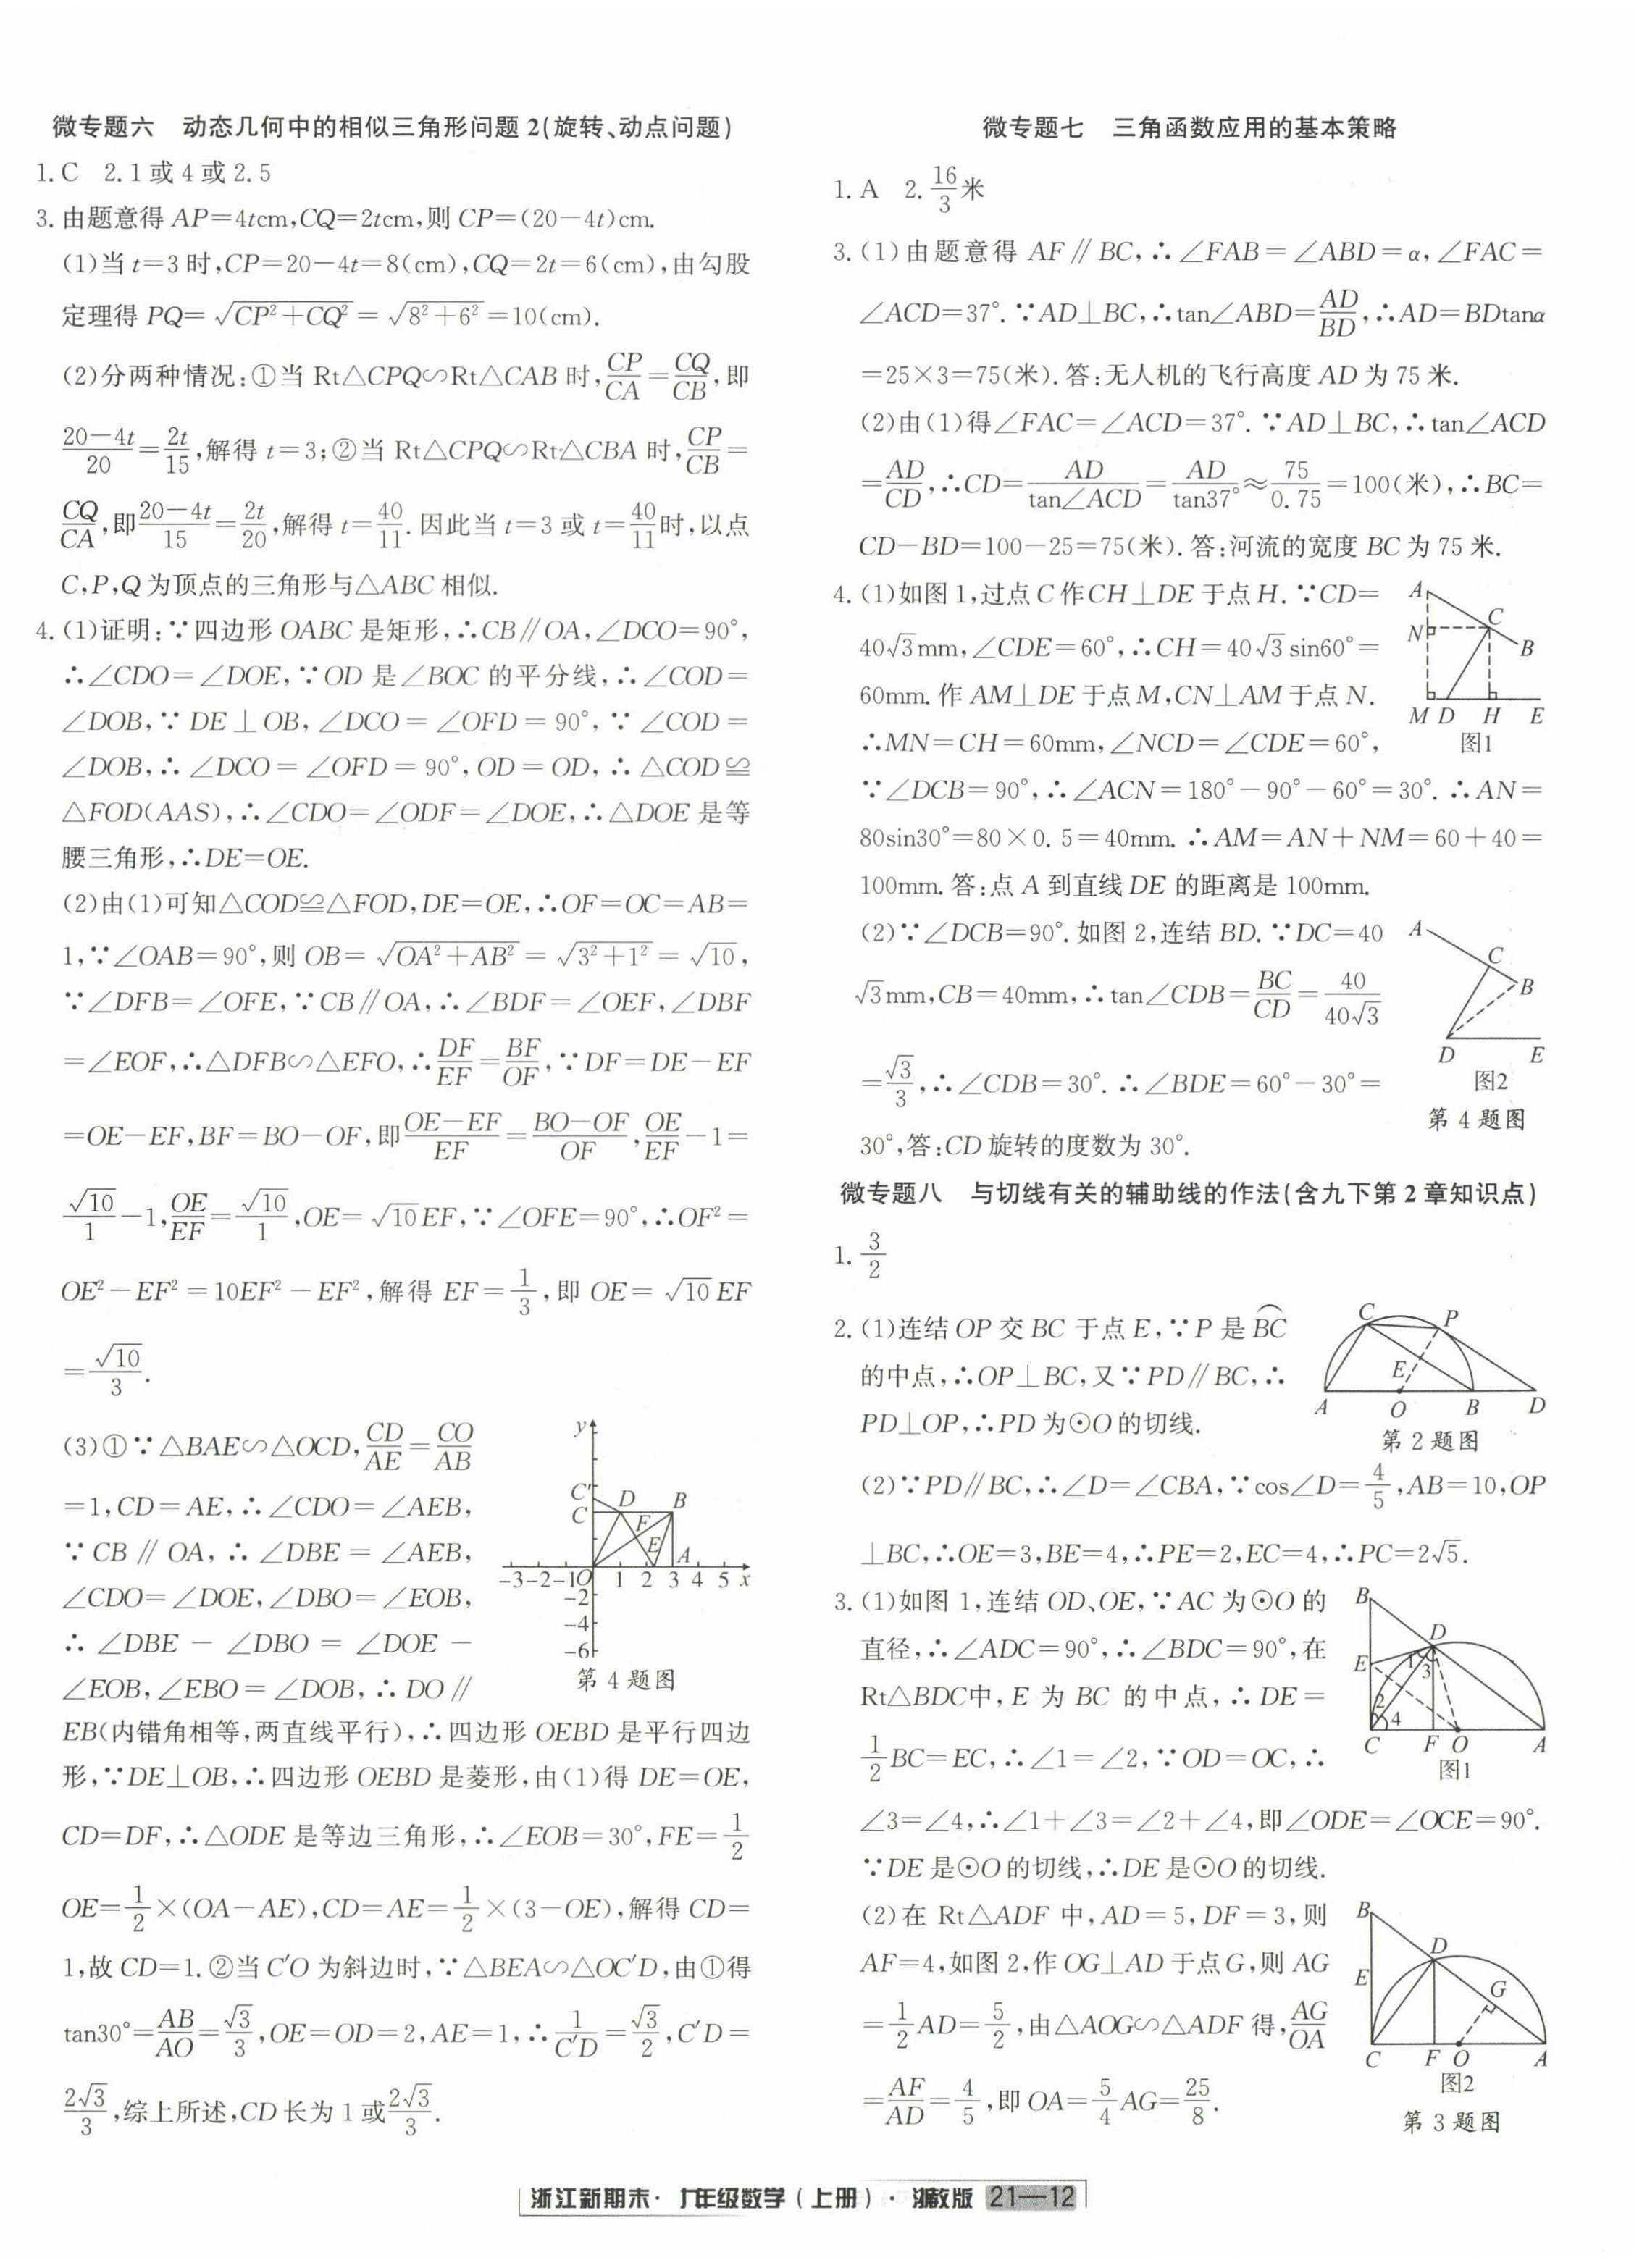 微专题六　动态几何中的相似三角形问题2(旋转、动点问题)
1. C　2. 1或4或2.5
3. 由题意得 AP=4tcm,CQ=2tcm,则 CP=(20-4t)cm.
(1)当 t=3 时,CP=20-4t=8(cm),CQ=2t=6(cm),由勾股
定理得 PQ=√(CP²+CQ²)=√(8²+6²)=10(cm).
(2)分两种情况:①当 Rt△CPQ∽Rt△CAB 时,CP/CA=CQ/CB,即
(20-4t)/20=2t/15,解得 t=3;②当 Rt△CPQ∽Rt△CBA 时,CP/CB=
CQ/CA,即(20-4t)/15=2t/20,解得 t=40/11. 因此当 t=3 或 t=40/11时,以点
C,P,Q 为顶点的三角形与△ABC 相似.
4. (1)证明:∵四边形 OABC 是矩形,∴CB∥OA,∠DCO=90°,
∴∠CDO=∠DOE,∵OD 是∠BOC 的平分线,∴∠COD=
∠DOB,∵DE⊥OB,∠DCO=∠OFD=90°,∵∠COD=
∠DOB,∴∠DCO=∠OFD=90°,OD=OD,∴△COD≌
△FOD(AAS),∴∠CDO=∠ODF=∠DOE,∴△DOE 是等
腰三角形,∴DE=OE.
(2)由(1)可知△COD≌△FOD,DE=OE,∴OF=OC=AB=
1,∵∠OAB=90°,则 OB=√(OA²+AB²)=√(3²+1²)=√10,
∵∠DFB=∠OFE,∵CB∥OA,∴∠BDF=∠OEF,∠DBF
=∠EOF,∴△DFB∽△EFO,∴DF/EF=BF/OF,∵DF=DE-EF
=OE-EF,BF=BO-OF,即(OE-EF)/EF=(BO-OF)/OF,OE/EF-1=
√10/1-1,OE/EF=√10/1,OE=√10EF,∵∠OFE=90°,∴OF²=
OE²-EF²=10EF²-EF²,解得 EF=1/3,即 OE=√10EF
=√10/3.
(3)①∵△BAE∽△OCD,CD/AE=CO/AB
=1,CD=AE,∴∠CDO=∠AEB,
∵CB∥OA,∴∠DBE=∠AEB,
∠CDO=∠DOE,∠DBO=∠EOB,
∴∠DBE-∠DBO=∠DOE-
∠EOB,∠EBO=∠DOB,∴DO∥
y
C′
C D B
F
E
A
-3-2-1O 1 2 3 4 5 x
-2
-4
-6
第4题图
EB(内错角相等,两直线平行),∴四边形 OEBD 是平行四边
形,∵DE⊥OB,∴四边形 OEBD 是菱形,由(1)得 DE=OE,
CD=DF,∴△ODE 是等边三角形,∴∠EOB=30°,FE=1/2
OE=1/2×(OA-AE),CD=AE=1/2×(3-OE),解得 CD=
1,故 CD=1. ②当 C′O 为斜边时,∵△BEA∽△OC′D,由①得
tan30°=AB/AO=√3/3,OE=OD=2,AE=1,∴1/C′D=√3/2,C′D=
2√3/3,综上所述,CD 长为 1 或2√3/3.
微专题七　三角函数应用的基本策略
1. A　2. 16/3米
3. (1)由题意得 AF∥BC,∴∠FAB=∠ABD=α,∠FAC=
∠ACD=37°. ∵AD⊥BC,∴tan∠ABD=AD/BD,∴AD=BDtanα
=25×3=75(米). 答:无人机的飞行高度 AD 为 75 米.
(2)由(1)得∠FAC=∠ACD=37°. ∵AD⊥BC,∴tan∠ACD
=AD/CD,∴CD=AD/tan∠ACD=AD/tan37°≈75/0.75=100(米),∴BC=
CD-BD=100-25=75(米). 答:河流的宽度 BC 为 75 米.
4. (1)如图1,过点 C 作 CH⊥DE 于点 H. ∵CD=
40√3mm,∠CDE=60°,∴CH=40√3sin60°=
60mm. 作 AM⊥DE 于点 M,CN⊥AM 于点 N.
∴MN=CH=60mm,∠NCD=∠CDE=60°,
A
C
N
B
M D H E
图1
∵∠DCB=90°,∴∠ACN=180°-90°-60°=30°. ∴AN=
80sin30°=80×0.5=40mm. ∴AM=AN+NM=60+40=
100mm. 答:点 A 到直线 DE 的距离是 100mm.
(2)∵∠DCB=90°. 如图2,连结 BD. ∵DC=40
√3mm,CB=40mm,∴tan∠CDB=BC/CD=40/40√3
=√3/3,∴∠CDB=30°. ∴∠BDE=60°-30°=
30°,答:CD 旋转的度数为 30°.
A
C
B
D E
图2
第4题图
微专题八　与切线有关的辅助线的作法(含九下第2章知识点)
1. 3/2
2. (1)连结 OP 交 BC 于点 E,∵P 是 B͡C
的中点,∴OP⊥BC,又∵PD∥BC,∴
PD⊥OP,∴PD 为⊙O 的切线.
C P
E
A O B D
第2题图
(2)∵PD∥BC,∴∠D=∠CBA,∵cos∠D=4/5,AB=10,OP
⊥BC,∴OE=3,BE=4,∴PE=2,EC=4,∴PC=2√5.
3. (1)如图1,连结 OD、OE,∵AC 为⊙O 的
直径,∴∠ADC=90°,∴∠BDC=90°,在
Rt△BDC中,E 为 BC 的中点,∴DE=
1/2BC=EC,∴∠1=∠2,∵OD=OC,∴
B
D
E 1 3
2 4
C F O A
图1
∠3=∠4,∴∠1+∠3=∠2+∠4,即∠ODE=∠OCE=90°.
∵DE 是⊙O 的切线,∴DE 是⊙O 的切线.
(2)在 Rt△ADF 中,AD=5,DF=3,则
AF=4,如图2,作 OG⊥AD 于点 G,则 AG
=1/2AD=5/2,由△AOG∽△ADF 得,AG/OA
=AF/AD=4/5,即 OA=5/4AG=25/8.
B
D
E
G
C F O A
图2
第3题图
浙江新期末·九年级数学(上册)·浙教版 21—12